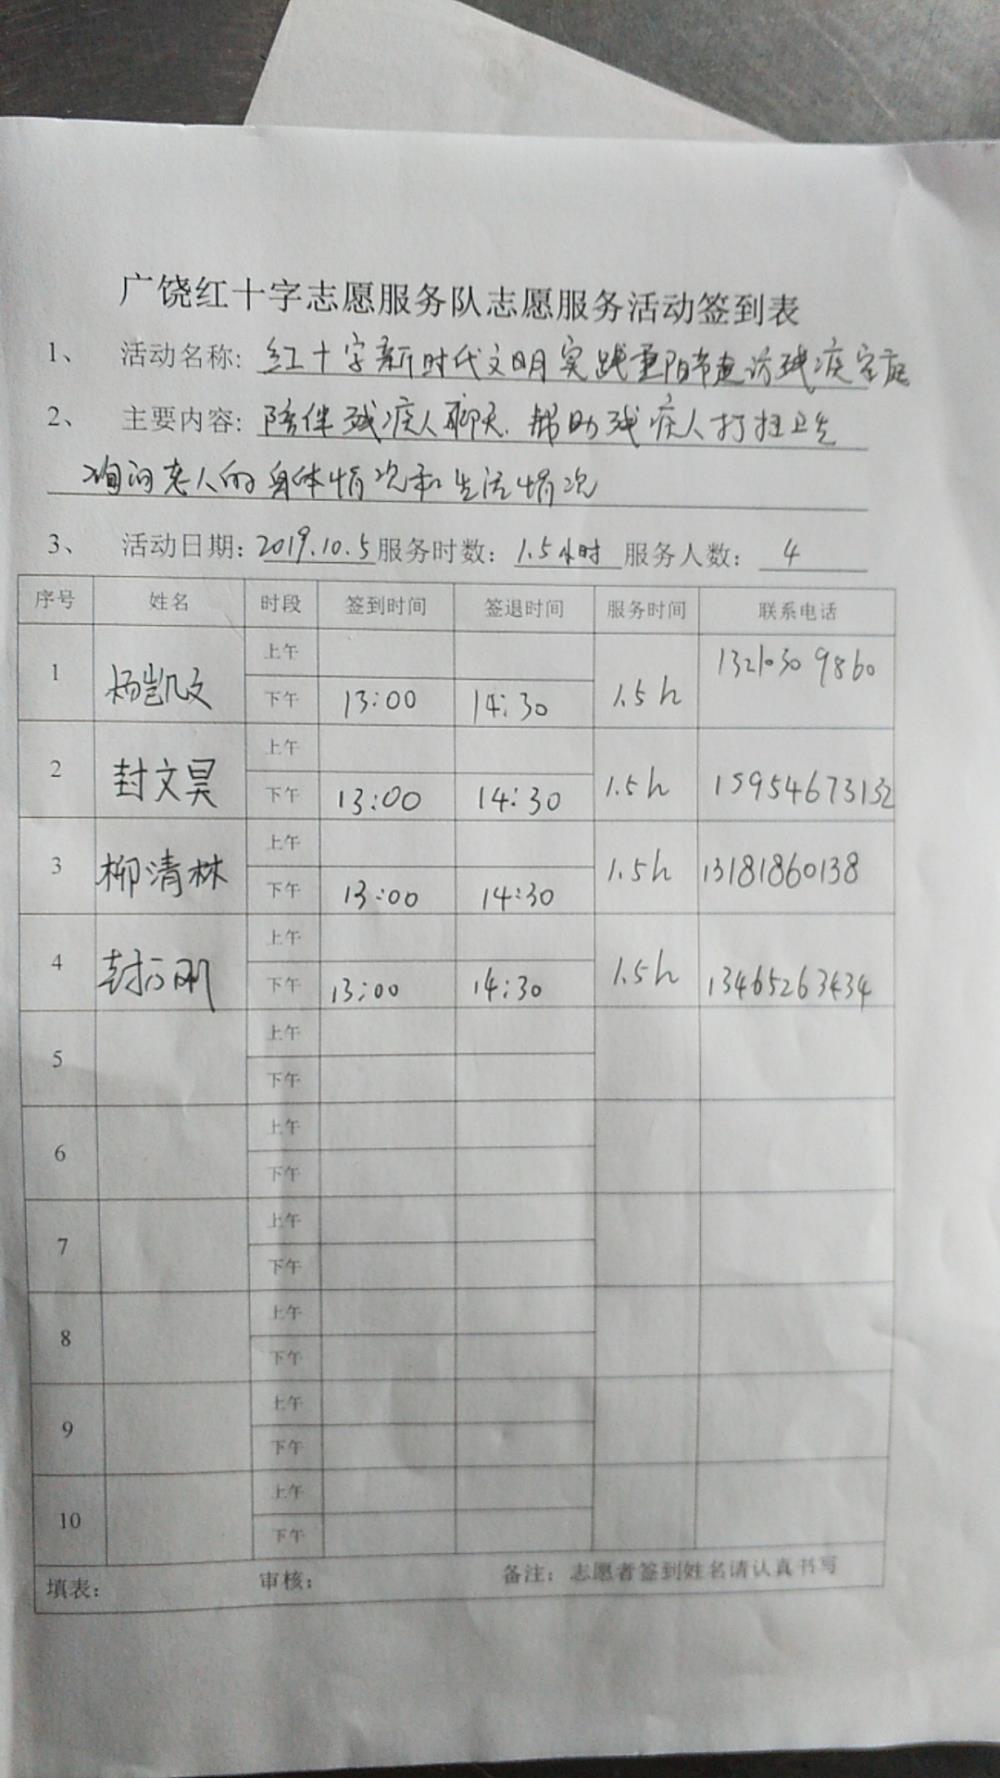 广饶红十字志愿服务队志愿服务活动签到表
1、 活动名称: 红十字新时代文明实践重阳节走访残疾家庭
2、 主要内容: 陪伴残疾人聊天.帮助残疾人打扫卫生
询问老人的身体情况和生活情况
3、 活动日期: 2019.10.5 服务时数: 1.5小时 服务人数: 4
序号 姓名 时段 签到时间 签退时间 服务时间 联系电话
1 杨凯文 上午 1.5h 13210309860
下午 13:00 14:30
2 封文昊 上午 1.5h 15954673132
下午 13:00 14:30
3 柳清林 上午 1.5h 13181860138
下午 13:00 14:30
4 封 刚 上午 1.5h 13465263434
下午 13:00 14:30
5 上午
下午
6 上午
下午
7 上午
下午
8 上午
下午
9 上午
下午
10 上午
下午
填表: 审核: 备注: 志愿者签到姓名请认真书写